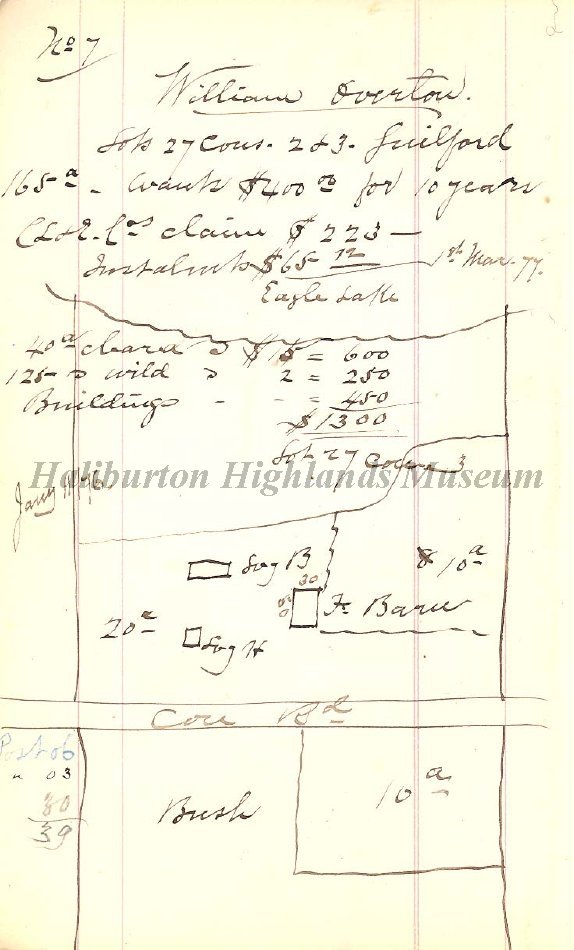 No 7
William Overton.
Lots 27 Cons. 2 & 3. Guilford
165 a - wants $400 00 for 10 years
C L & E. Cos claim $223 —
Instalmts $65 12 — 1st Mar. 77.
Eagle Lake
40 a cleard @ $15 = 600
125 @ wild @ 2 = 250
Buildings - - = 450
$1300
Lot 27 Conn 3
Haliburton Highlands Museum
Jany
Log B
30
50
8 10 a
Fr Barn
20 a
Log H
Con Rd
Post ob
" 03
30
39
Bush
10 a